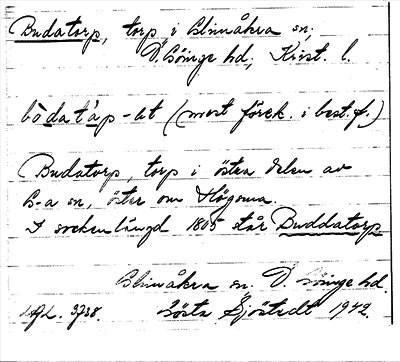 Budatorp, torp i Glimåkra sn,
Ö. Göinge hd, Krist. l.
bodatåp -et (mest förek. i best. f.)
Budatorp, torp i östra delen av
G-a sn, öster om Högsma.
I sockenlängd 1805 står Buddatorp
Glimåkra sn. Ö. Göinge hd.
3738. Gösta Sjöstedt 1942.